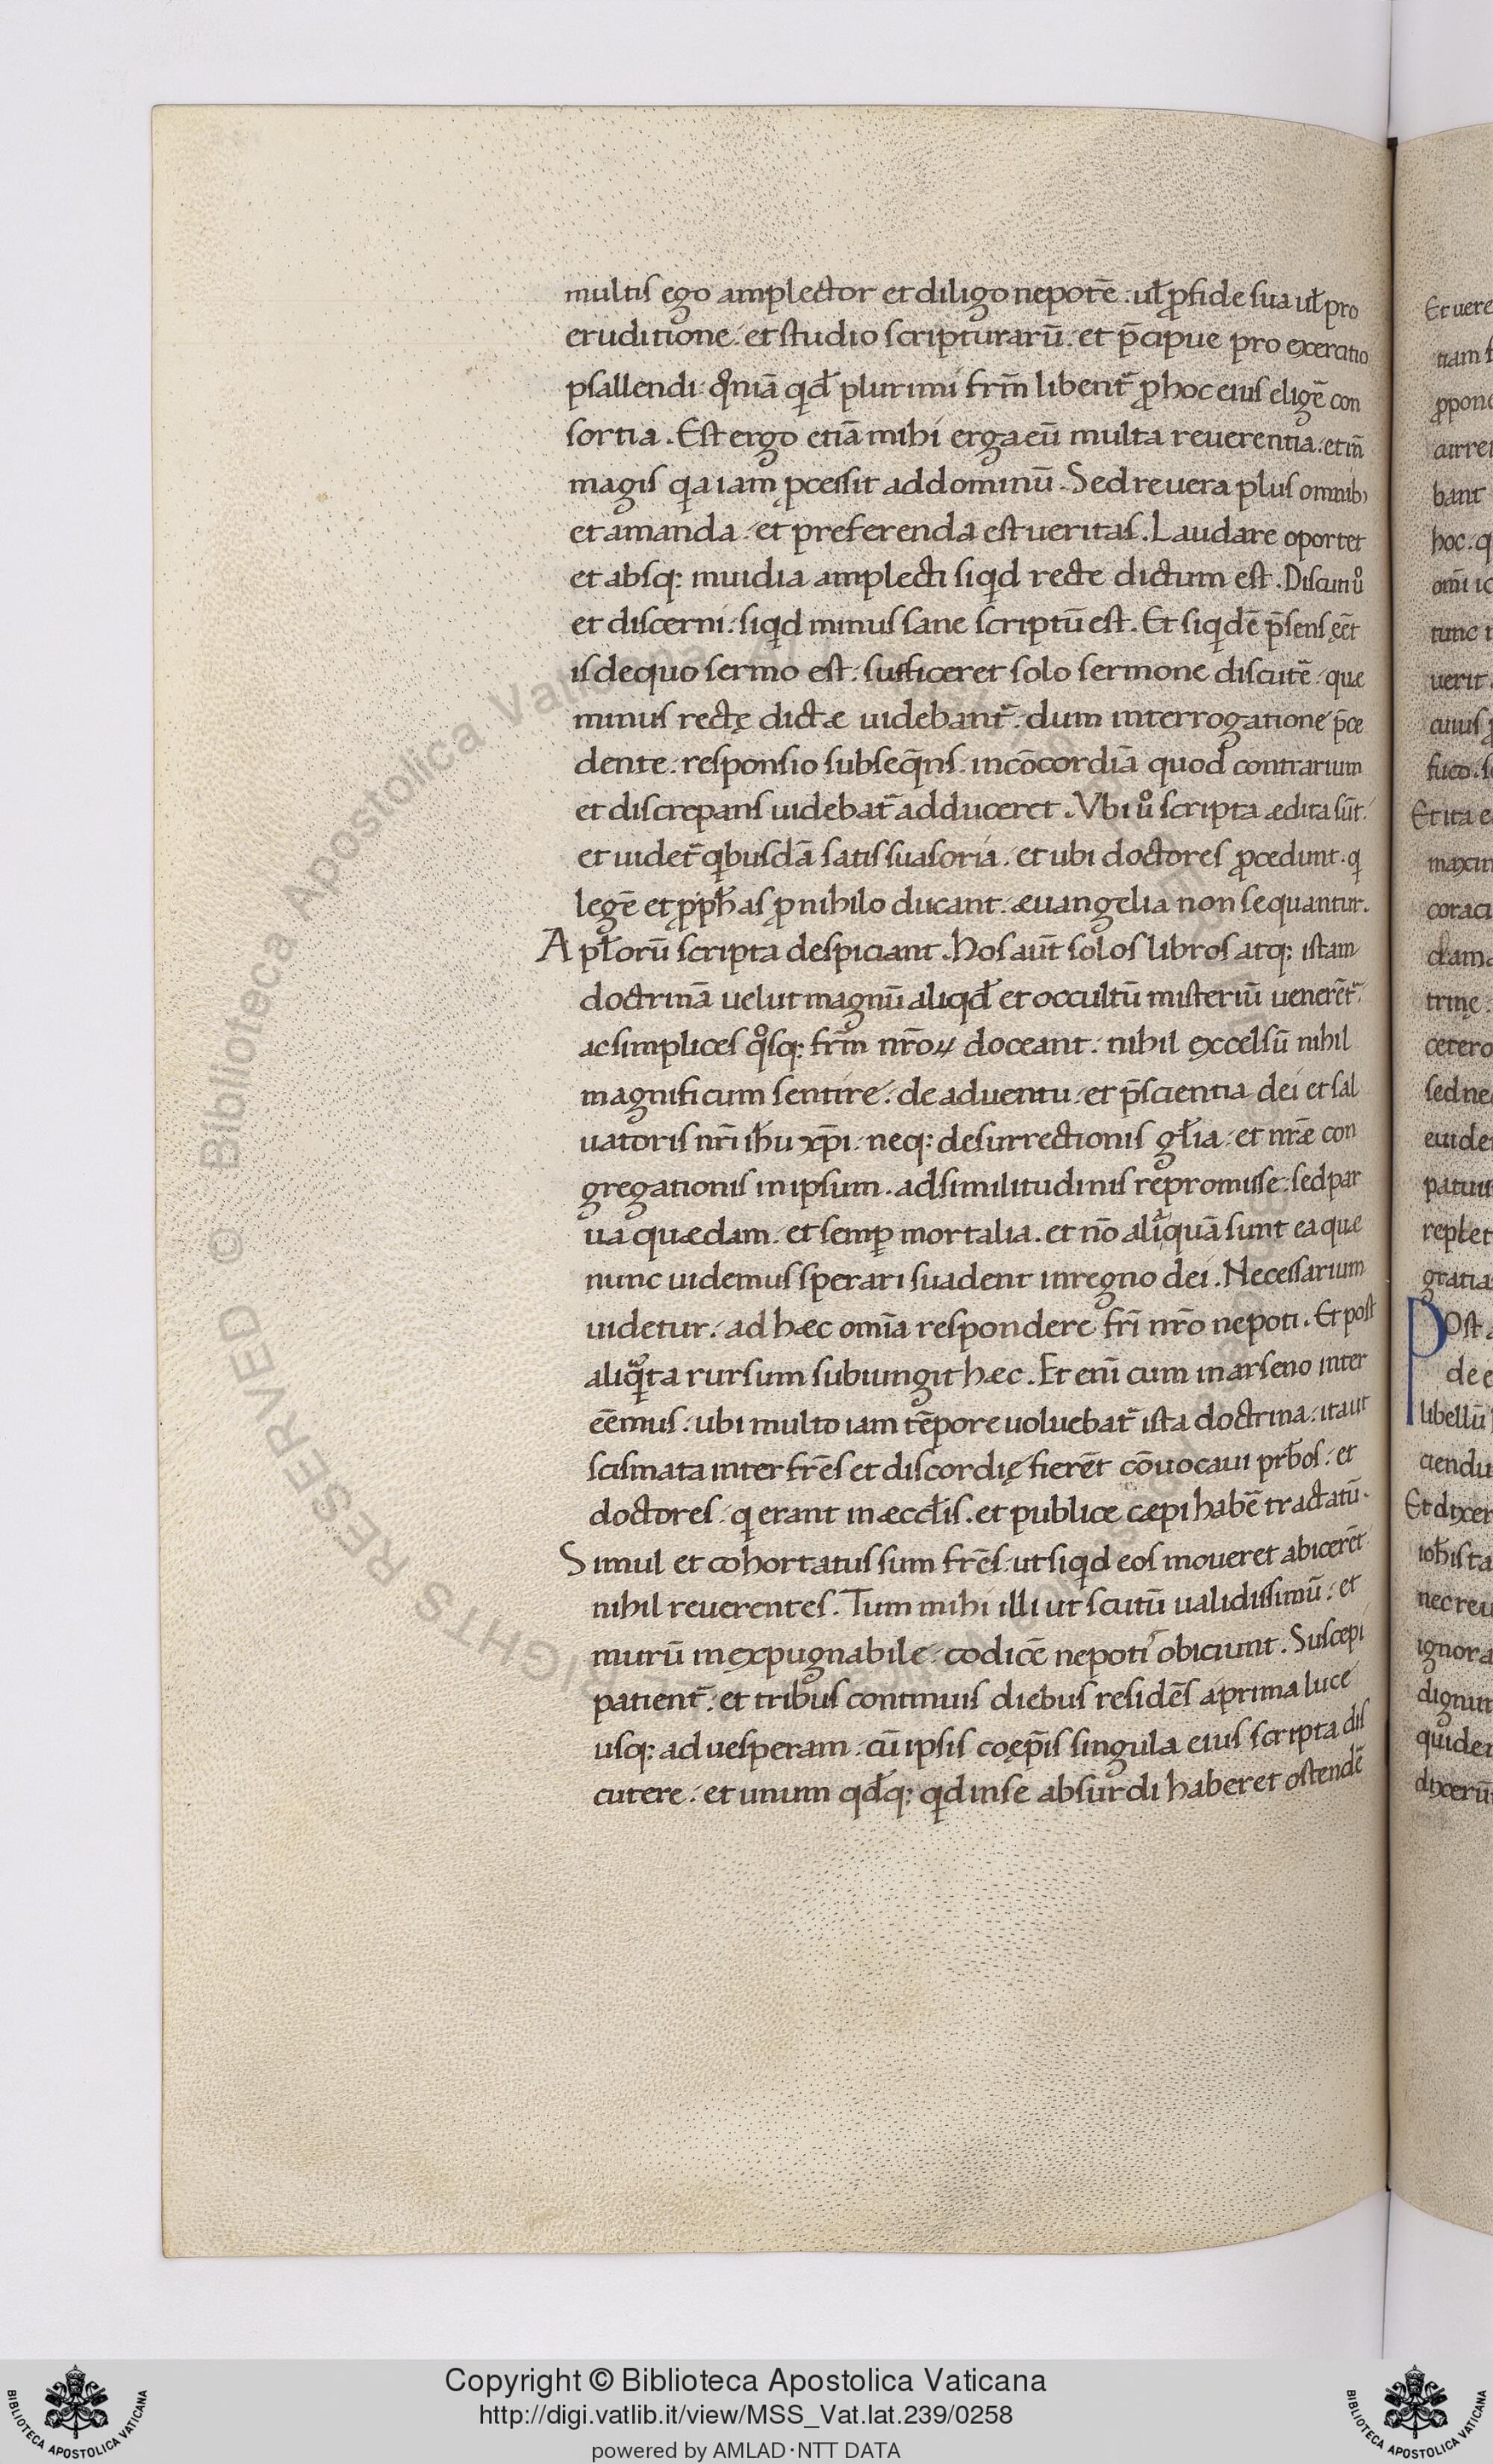 multis ego amplector et diligo nepotē. ul̄ p̱fide sua ul̄ pro
eruditione. et studio scripturarū. et p̄cipue pro exercitio
psallendi. qͦniā qd̄ plurimi frm̄ libent̄ ꝓ hoc eius eligē con
sortia. Est ergo etiā mihi erga eū multa reuerentia. et in̄
magis qa iam p̱cessit ad dominū. Sed reuera plus omnibꝰ
et amanda. et preferenda est ueritas. Laudare oportet
et absq: inuidia amplecti siqd recte dictum est. Discuti uͦ
et discerni. siqd minus sane scriptū est. Et siqdē p̄sens eēt
is de quo sermo est. sufficeret solo sermone discutē. quæ
minus rectę dictæ uidebant̄. dum interrogatione p̄ce
dente. responsio subseq̄ns. in cōcordiā quod contrarium
et discrepans uidebat̄ adduceret. Vbi uͦ scripta ædita sūt.
et uidet̄ qbusdā satis suasoria. et ubi doctores ꝓcedunt. q
legē et p̱ph̄as ꝓ nihilo ducant. æuangelia non sequantur.
Apl̄orū scripta despiciant. hos aūt solos libros atq: istam
doctrinā uelut magnū aliqd̄ et occultū misteriū uenerēt̄.
ac simplices qͦsq: frm̄ nr̄oꝝ doceant. nihil excelsū nihil
magnificum sentire. de aduentu. et p̄scientia dei et sal
uatoris nr̄i ih̄u xp̄i. neq: de surrectionis gl̄ia. et nr̄æ con
gregationis in ipsum. ad similitudinis repromisse. sed par
ua quædam. et semp̱ mortalia. et nō aliquā sunt ea quæ
nunc uidemus sperari suadent in regno dei. Necessarium
uidetur. ad hæc omīa respondere fr̄i nr̄o nepoti. Et post
aliqᷓta rursum subiungit hæc. Et eni cum in arseno inter
eēmus. ubi multo iam tēpore uoluebat̄ ista doctrina. ita ut
scismata inter fr̄es et discordię fierēt cōuocaui prb̄os. et
doctores. q erant in æccl̄is. et publice cæpi habē tractatū.
Simul et cohortatus sum fr̄es. ut siqd eos moueret abicerēt
nihil reuerentes. Tum mihi illi ut scutū ualidissimū. et
murū inexpugnabile. codicē nepotis obiciunt. Suscepi
patient̄. et tribus continuis diebus residēs a prima luce
usq: ad uesperam. cū ipsis coęp̄is singula eius scripta dis
cutere. et unum qd̄q: qd in se absurdi haberet ostendē
Copyright © Biblioteca Apostolica Vaticana
http://digi.vatlib.it/view/MSS_Vat.lat.239/0258
powered by AMLAD·NTT DATA